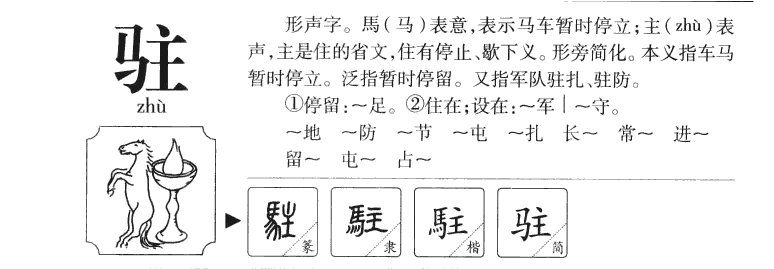 驻
zhù
形声字。馬(马)表意,表示马车暂时停立;主(zhù)表
声,主是住的省文,住有停止、歇下义。形旁简化。本义指车马
暂时停立。泛指暂时停留。又指军队驻扎、驻防。
①停留:~足。②住在;设在:~军|~守。
~地 ~防 ~节 ~屯 ~扎 长~ 常~ 进~
留~ 屯~ 占~
駐 篆 駐 隶 駐 楷 驻 简